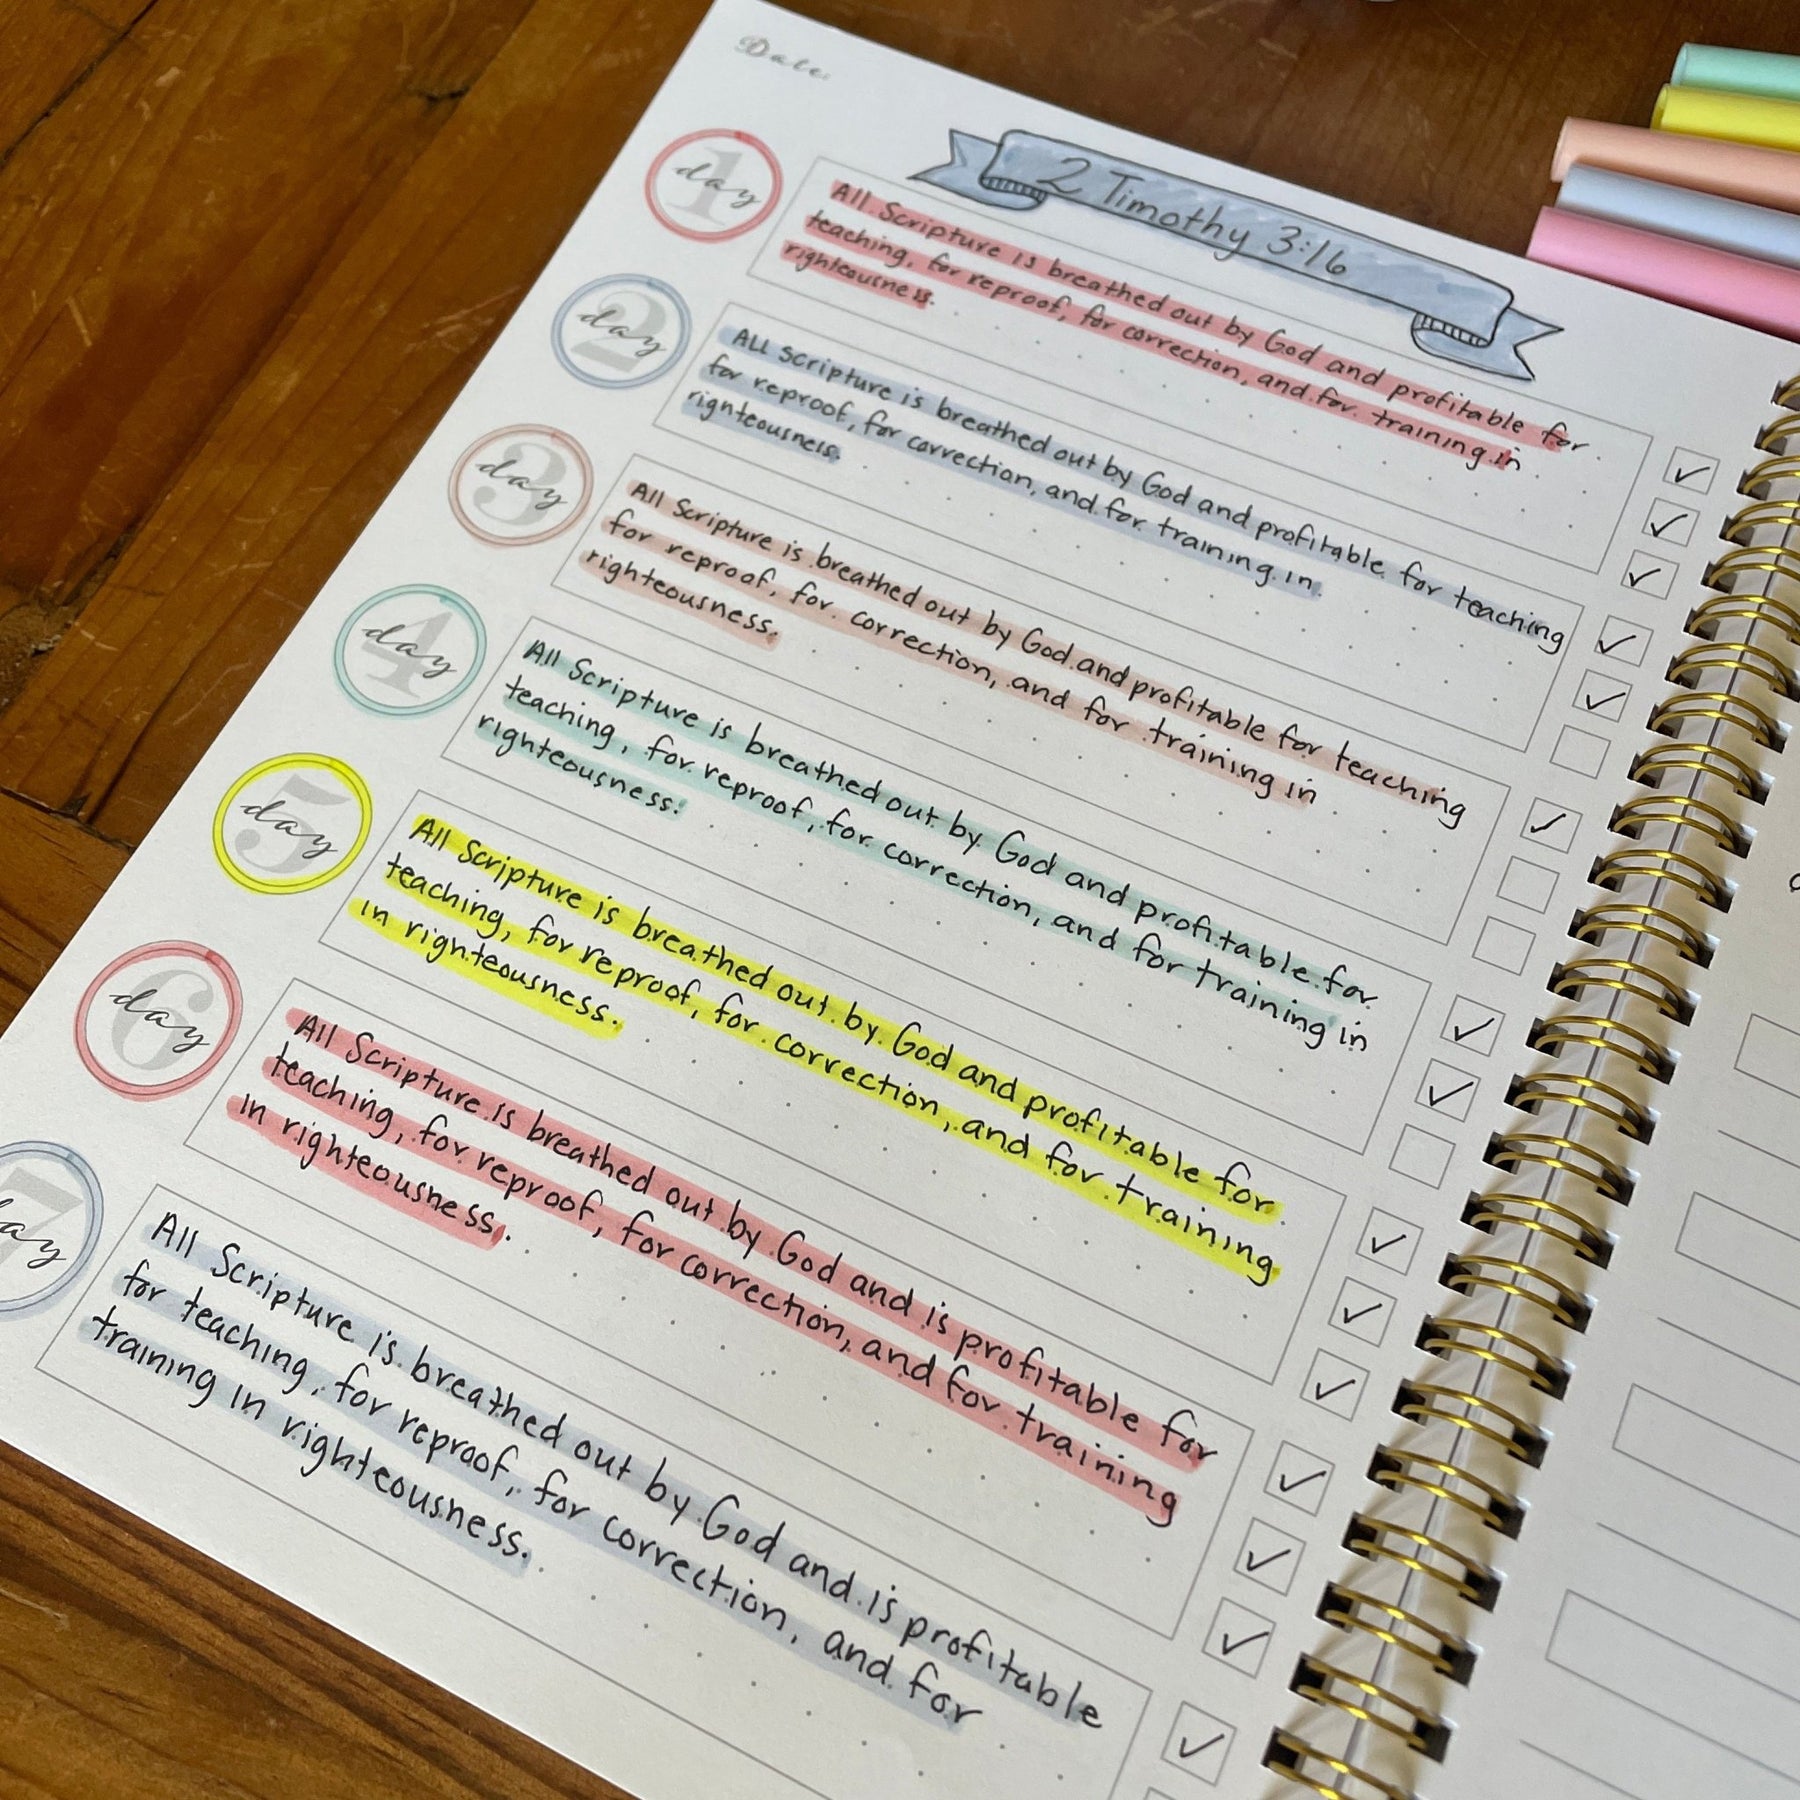 Date:
2 Timothy 3:16
day 1
All Scripture is breathed out by God and profitable for
teaching, for reproof, for correction, and for training in
righteousness.
day 2
All scripture is breathed out by God and profitable for teaching
for reproof, for correction, and for training in
righteousness.
day 3
All Scripture is breathed out by God and profitable for teaching
for reproof, for correction, and for training in
righteousness.
day 4
All Scripture is breathed out by God and profitable for
teaching, for reproof, for correction, and for training in
righteousness.
day 5
All Scripture is breathed out by God and profitable for
teaching, for reproof, for correction, and for training
in righteousness.
day 6
All Scripture is breathed out by God and is profitable for
teaching, for reproof, for correction, and for training
in righteousness.
day 7
All Scripture is breathed out by God and is profitable
for teaching, for reproof, for correction, and for
training in righteousness.